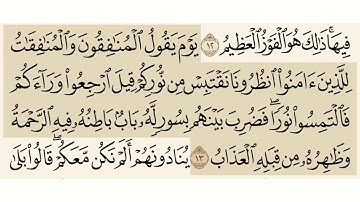 فِيهَا ۚ ذَٰلِكَ هُوَ ٱلْفَوْزُ ٱلْعَظِيمُ ١٢ يَوْمَ يَقُولُ ٱلْمُنَٰفِقُونَ وَٱلْمُنَٰفِقَٰتُ
لِلَّذِينَ ءَامَنُوا۟ ٱنظُرُونَا نَقْتَبِسْ مِن نُّورِكُمْ قِيلَ ٱرْجِعُوا۟ وَرَآءَكُمْ
فَٱلْتَمِسُوا۟ نُورًا ۖ فَضُرِبَ بَيْنَهُم بِسُورٍ لَّهُۥ بَابٌۢ بَاطِنُهُۥ فِيهِ ٱلرَّحْمَةُ
وَظَٰهِرُهُۥ مِن قِبَلِهِ ٱلْعَذَابُ ١٣ يُنَادُونَهُمْ أَلَمْ نَكُن مَّعَكُمْ ۖ قَالُوا۟ بَلَىٰ